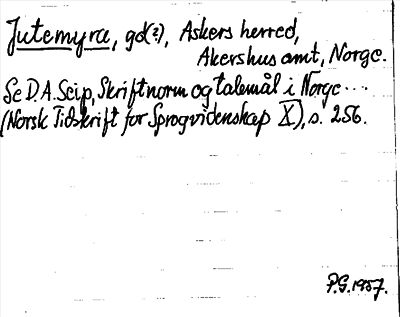 Jutemyra, gd(?), Askers herred,
Akershus amt, Norge.
Se D.A. Seip, Skriftnorm og talemål i Norge ...
(Norsk Tidskrift for Sprogvidenskap X), s. 256.
P.G. 1957.